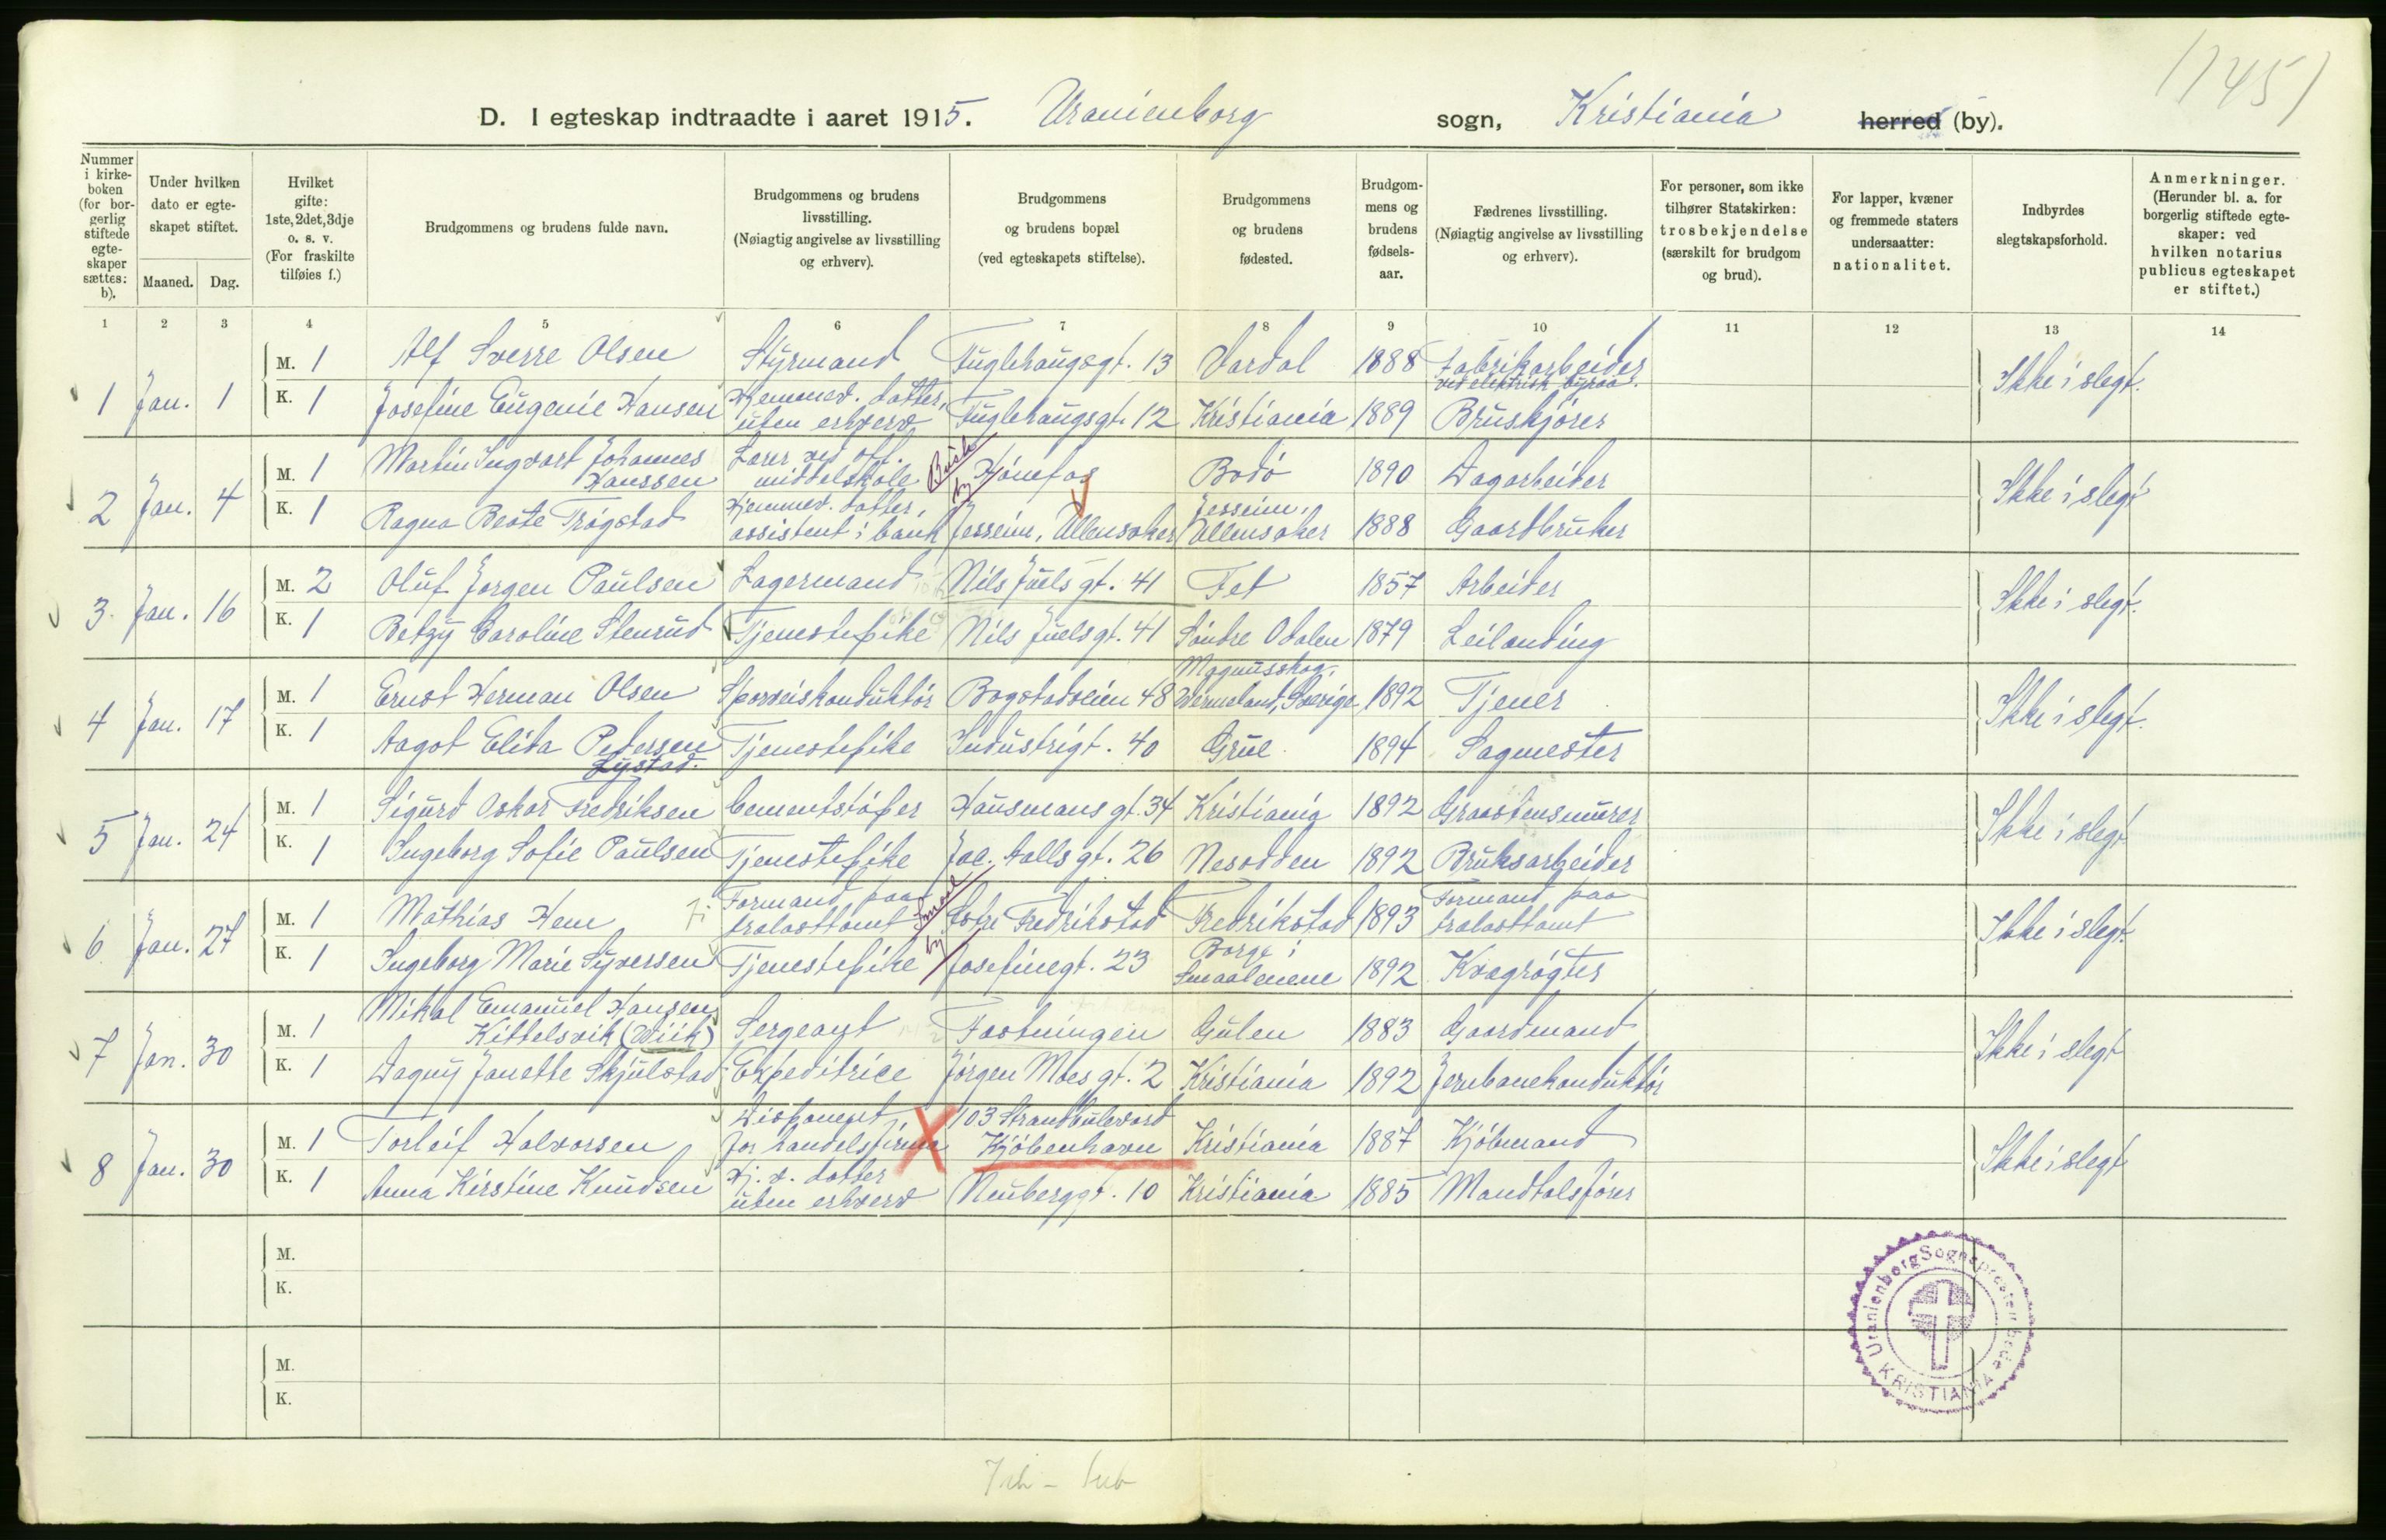 1745
D. I egteskap indtraadte i aaret 1915. Uranienborg sogn, Kristiania herred (by).
Nummer i kirkeboken (for borgerlig stiftede egteskaper sættes: b).
Under hvilken dato er egteskapet stiftet.
Maaned. Dag.
Hvilket gifte: 1ste, 2det, 3dje o. s. v. (For fraskilte tilføies f.)
Brudgommens og brudens fulde navn.
Brudgommens og brudens livsstilling. (Nøiagtig angivelse av livsstilling og erhverv).
Brudgommens og brudens bopæl (ved egteskapets stiftelse).
Brudgommens og brudens fødested.
Brudgommens og brudens fødselsaar.
Fædrenes livsstilling. (Nøiagtig angivelse av livsstilling og erhverv).
For personer, som ikke tilhører Statskirken: trosbekjendelse (særskilt for brudgom og brud).
For lapper, kvæner og fremmede staters undersaatter: nationalitet.
Indbyrdes slegtskapsforhold.
Anmerkninger. (Herunder bl. a. for borgerlig stiftede egteskaper: ved hvilken notarius publicus egteskapet er stiftet.)
1 2 3 4 5 6 7 8 9 10 11 12 13 14
1 Jan. 1 M. 1 Alf Sverre Olsen Styrmand Fuglehaugsgt. 13 Vardal 1888 Fabrikarbeider ved elektrisk byraa. Ikke i slegt.
K. 1 Josefine Eugenie Hansen Hjemmev. datter, uten erhverv Fuglehaugsgt. 12 Kristiania 1889 Bruskjører
2 Jan. 4 M. 1 Martin Ingvart Johannes Hanssen Lærer ved off. middelskole Busk. by Hønefos Bodø 1890 Dagarbeider Ikke i slegt
K. 1 Ragna Beate Trøgstad Hjemmev. datter, assistent i bank Jessheim, Ullensaker Jessheim, Ullensaker 1888 Gaardbruker
3. Jan. 16 M. 2 Oluf Jørgen Paulsen Lagermand Nils Juels gt. 41 Fet 1857 Arbeider Ikke i slegt.
K. 1 Betzy Caroline Stenrud Tjenestepike Nils Juels gt. 41 Søndre Odalen 1879 Leilænding
4 Jan. 17 M. 1 Ernst Herman Olsen Sporveiskonduktør Bogstadveien 48 Magnusskog, Vermeland, Sverige 1892 Tjener Ikke i slegt.
K. 1 Aagot Elida Petersen Lystad. Tjenestepike Industrigt. 40 Grue 1894 Sagmester
5 Jan. 24 M. 1 Sigurd Oskar Fredriksen Cementstøper Hausmans gt. 34 Kristiania 1892 Graastensmurer Ikke i slegt
K. 1 Ingeborg Sofie Paulsen Tjenestepike Jac. Aalls gt. 26 Nesodden 1892 Bruksarbeider
6 Jan. 27 M. 1 Mathias Hem Formand paa trælasttomt Smaal. by Østre Fredrikstad Fredrikstad 1893 Formand paa trælasttomt Ikke i slegt.
K. 1 Ingeborg Marie Syversen Tjenestepike Josefinegt. 23 Borge i Smaalenene 1892 Kvægrøgter
7 Jan. 30 M. 1 Mikal Emanuel Hansen Kittelsvik (Wiik) Sergeant Fæstningen Gulen 1883 Gaardmand Ikke i slegt
K. 1 Dagny Janette Skjulstad Expeditrice Jørgen Moes gt. 2 Kristiania 1892 Jernbanekonduktør
8 Jan. 30 M. 1 Torleif Halvorsen Disponent for handelsfirma 103 Strandbulevard Kjøbenhavn Kristiania 1887 Kjøbmand Ikke i slegt
K. 1 Anna Kirstine Knudsen Hj. v. datter uten erhverv Neuberggt. 10 Kristiania 1885 Mandtalsfører
M.
K.
M.
K.
Uranienborg Sogneprestembede KRISTIANIA